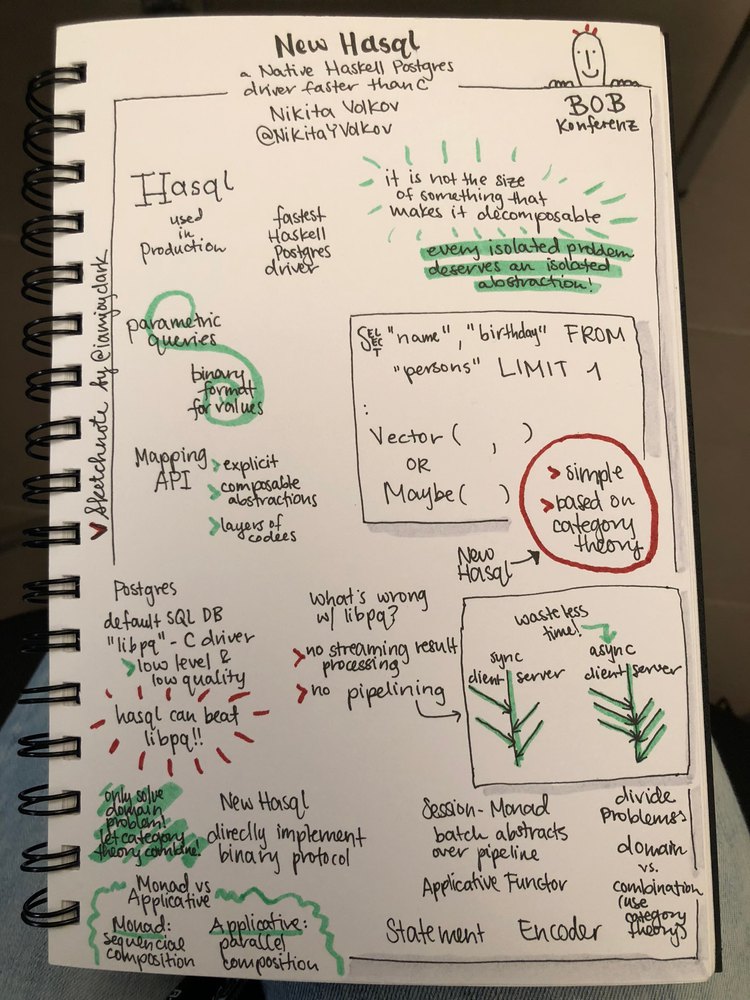 New Hasql
a Native Haskell Postgres
driver faster than C
Nikita Volkov
@NikitaYVolkov
BOB
Konferenz
Sketchnote by @iamjoyclark
Hasql
used
in
Production
fastest
Haskell
Postgres
driver
it is not the size
of something that
makes it decomposable
every isolated problem
deserves an isolated
abstraction!
parametric
queries
binary
format
for values
Mapping
API
> explicit
> composable
abstractions
> layers of
codecs
SELECT "name", "birthday" FROM
"persons" LIMIT 1
:
Vector ( , )
OR
Maybe ( )
> simple
> based on
category
theory
New
Hasql
Postgres
default SQL DB
"libpq" - C driver
> low level &
low quality
hasql can beat
libpq!!
what's wrong
w/ libpq?
> no streaming result
processing
> no pipelining
waste less
time!
sync
client server
async
client server
only solve
domain
problem!
let category
theory combine!
New Hasql
directly implement
binary protocol
Monad vs
Applicative
Monad:
sequencial
composition
Applicative:
parallel
composition
Session-Monad
batch abstracts
over pipeline
Applicative Functor
Statement Encoder
divide
Problems
domain
vs.
combination
(use
category
theory)